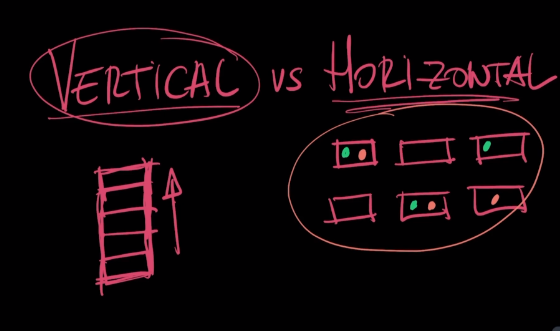 VERTICAL vs HORIZONTAL